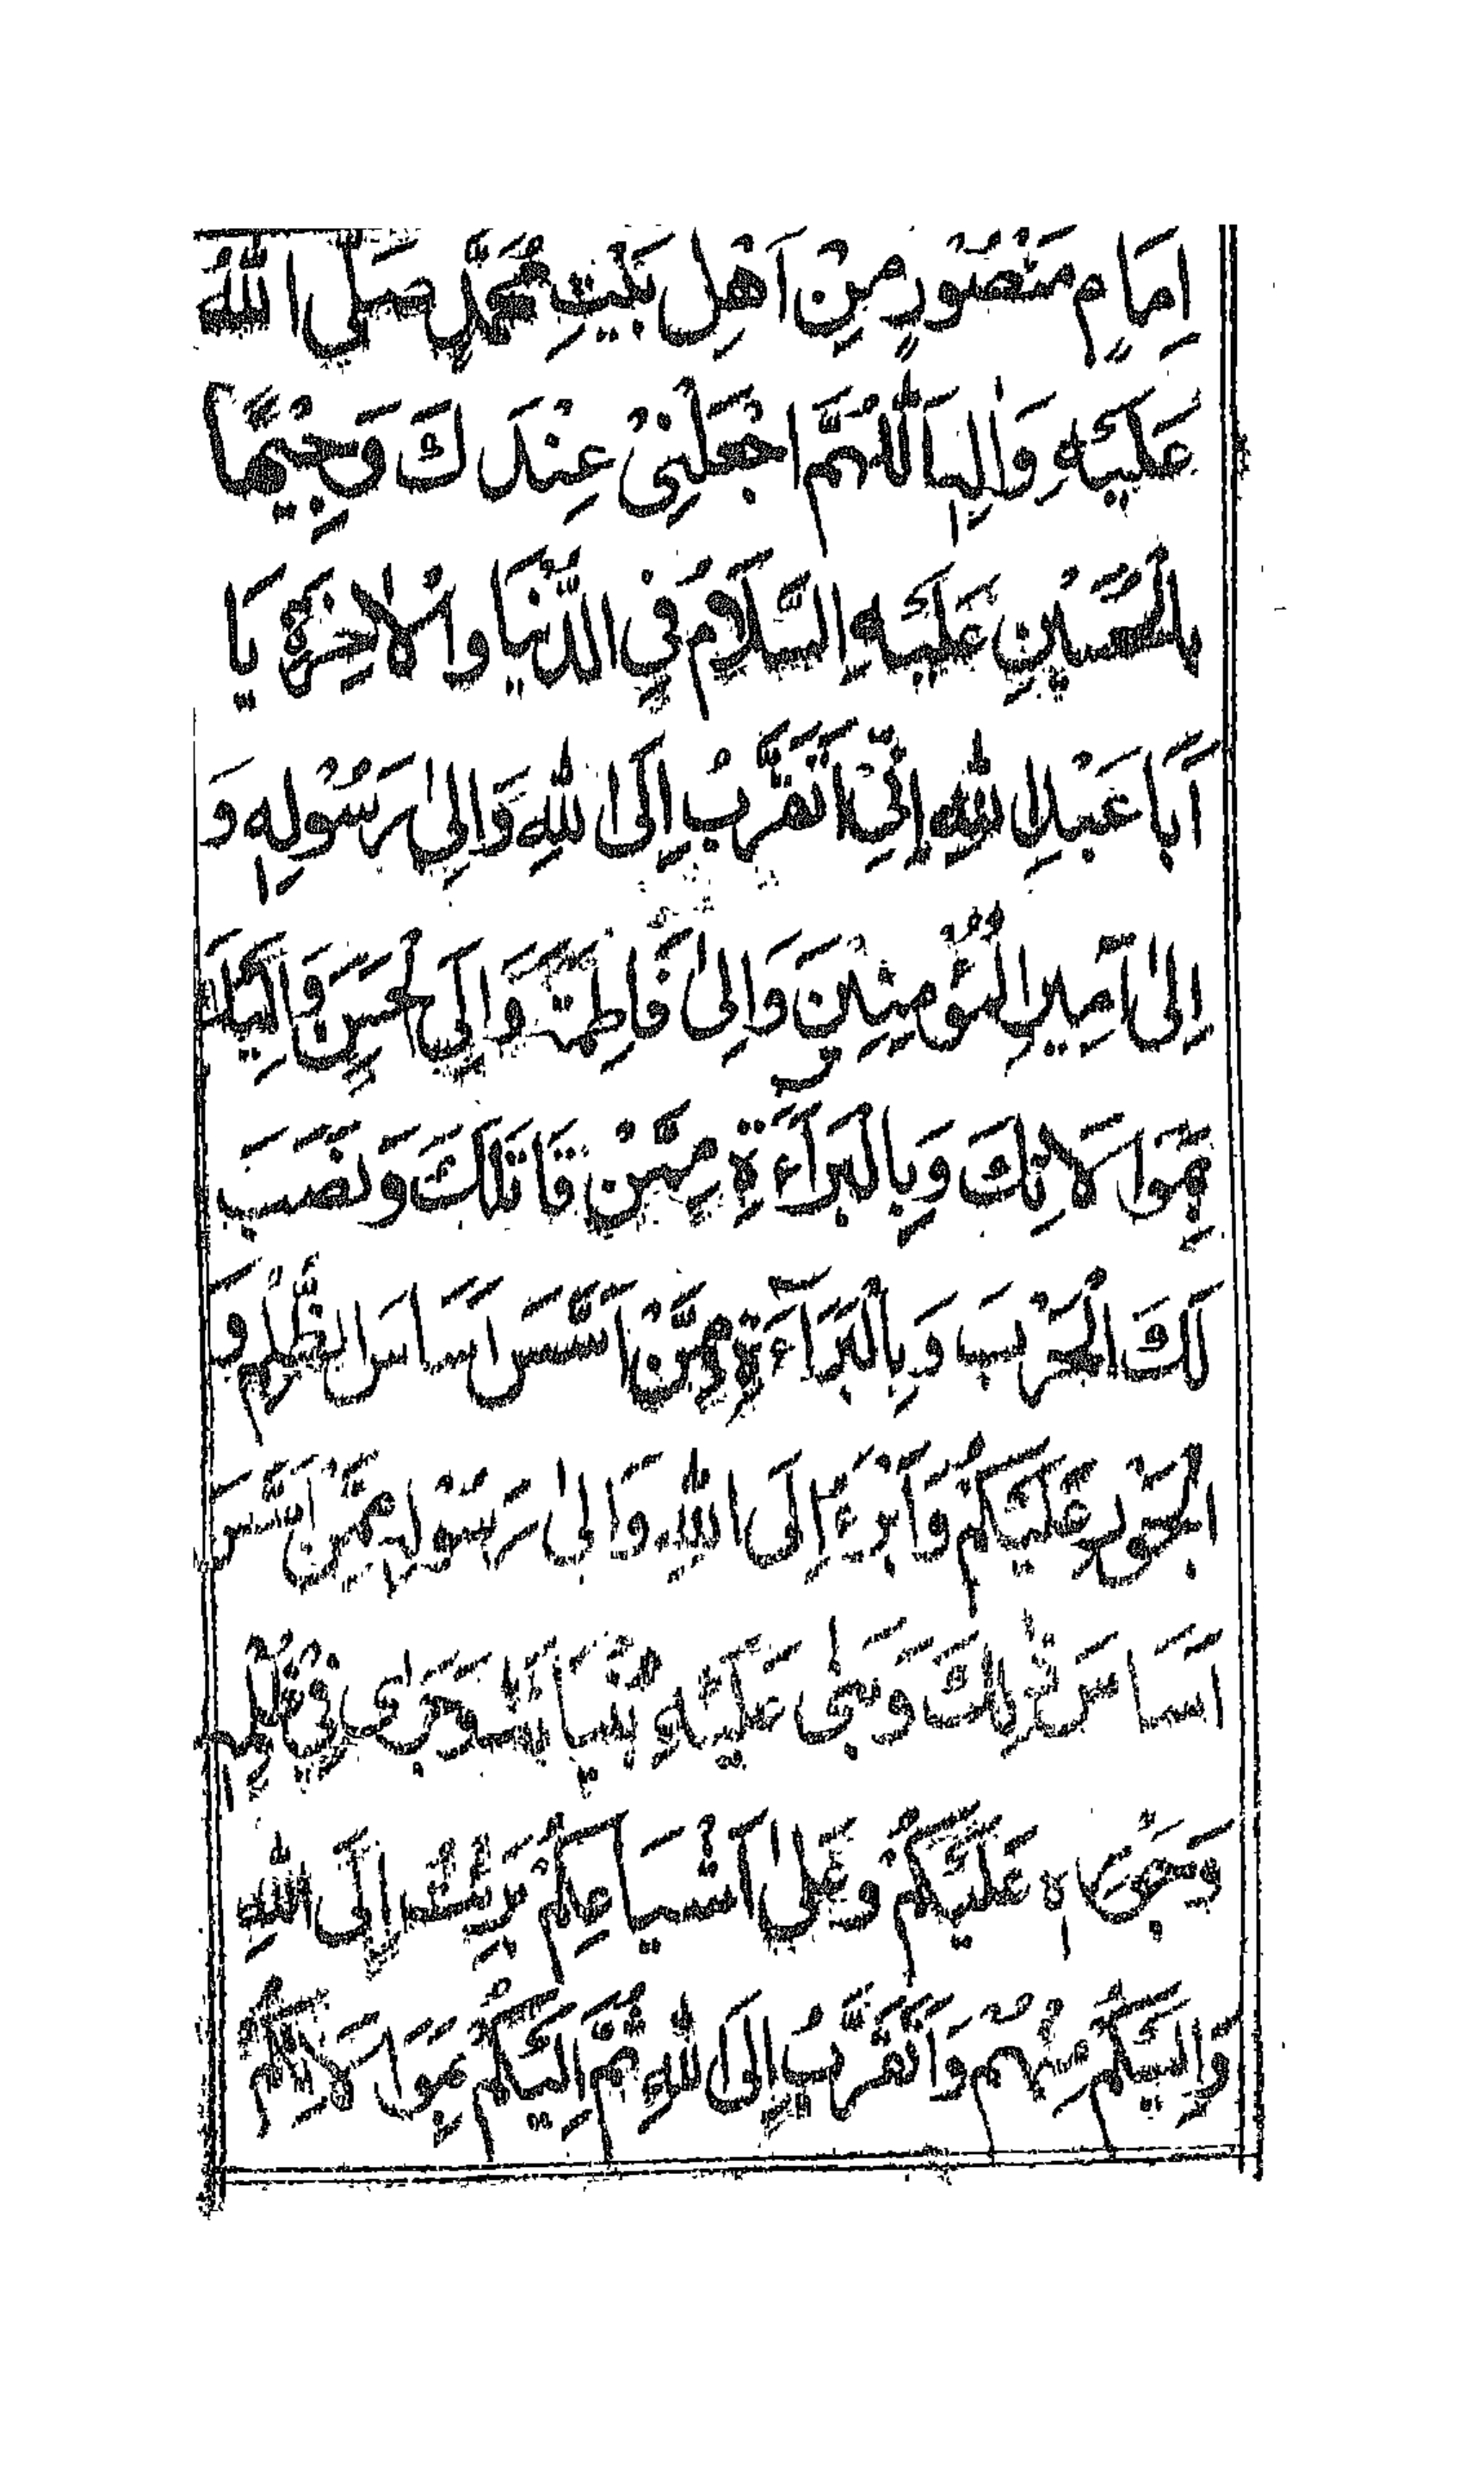 اِمَامٍ مَنْصُورٍ مِنْ اَهْلِ بَيْتِ مُحَمَّدٍ صَلَّى اللّٰهُ
عَلَيْهِ وَاٰلِهٖ اَللّٰهُمَّ اجْعَلْنِیْ عِنْدَكَ وَجِيْهًا
بِالْحُسَيْنِ عَلَيْهِ السَّلَامُ فِی الدُّنْيَا وَالْاٰخِرَةِ يَا
اَبَا عَبْدِ اللّٰهِ اِنِّیْ اَتَقَرَّبُ اِلَى اللّٰهِ وَاِلٰى رَسُوْلِهٖ وَ
اِلٰى اَمِيْرِ الْمُؤْمِنِيْنَ وَاِلٰى فَاطِمَةَ وَاِلَى الْحَسَنِ وَاِلَيْكَ
بِمُوَالَاتِكَ وَبِالْبَرَآءَةِ مِمَّنْ قَاتَلَكَ وَنَصَبَ
لَكَ الْحَرْبَ وَبِالْبَرَآءَةِ مِمَّنْ اَسَّسَ اَسَاسَ الظُّلْمِ وَ
الْجَوْرِ عَلَيْكُمْ وَاَبْرَءُ اِلَى اللّٰهِ وَاِلٰى رَسُوْلِهٖ مِمَّنْ اَسَّسَ
اَسَاسَ ذٰلِكَ وَبَنٰى عَلَيْهِ بُنْيَانَهُ وَجَرٰى فِیْ ظُلْمِهٖ
وَجَوْرِهٖ عَلَيْكُمْ وَعَلٰى اَشْيَاعِكُمْ بَرِئْتُ اِلَى اللّٰهِ
وَاِلَيْكُمْ مِنْهُمْ وَاَتَقَرَّبُ اِلَى اللّٰهِ ثُمَّ اِلَيْكُمْ بِمُوَالَاتِكُمْ